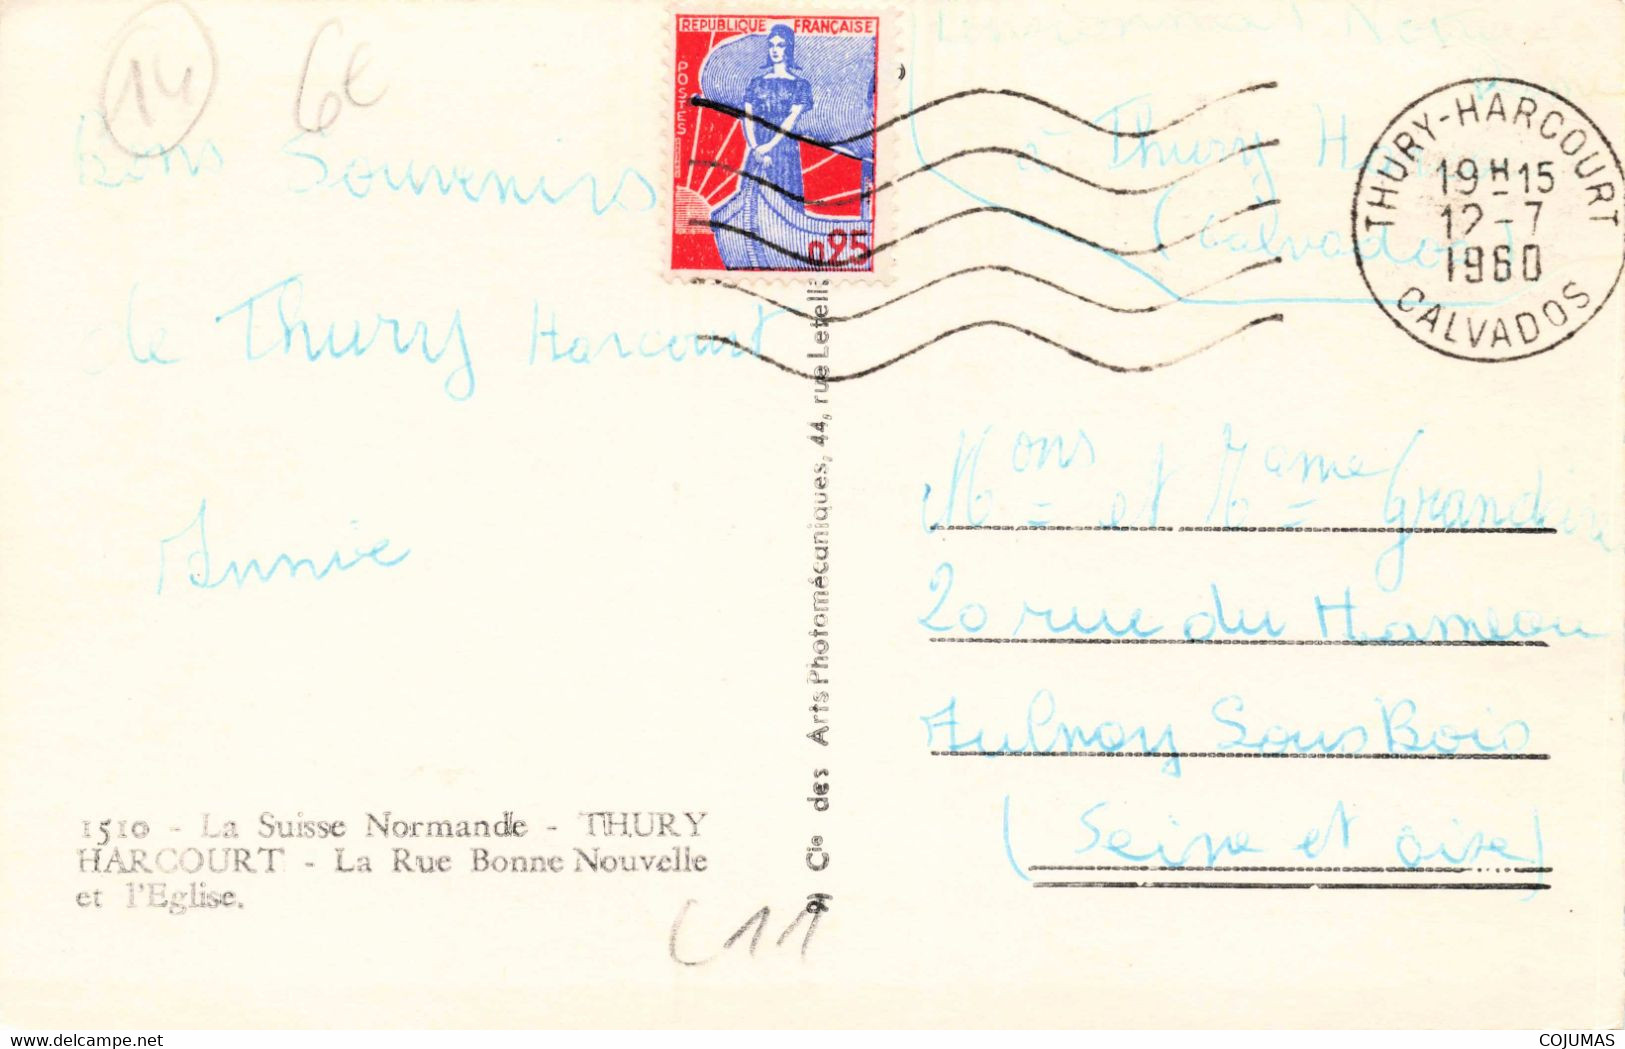 14
6€
Bons Souvenirs
de Thury Harcourt
Annie
1510 - La Suisse Normande - THURY
HARCOURT - La Rue Bonne Nouvelle
et l'Eglise.
C11
9) Cie des Arts Photomécaniques, 44, rue Letell
REPUBLIQUE FRANÇAISE
POSTES
0,25
à Thury
(Calvados)
THURY-HARCOURT
19H15
12-7
1960
CALVADOS
Mons et Mame
20 rue du Hameau
Aulnay Sous Bois
(Seine et Oise)
COJUMAS